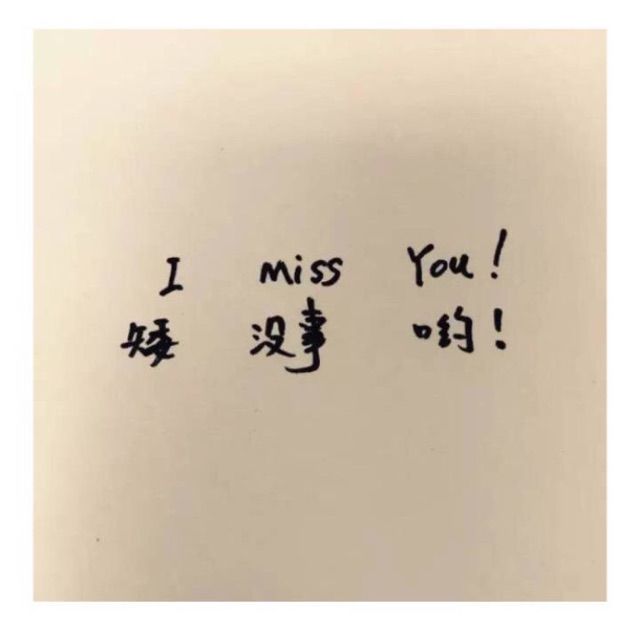 I miss You!
矮 没事 哟!